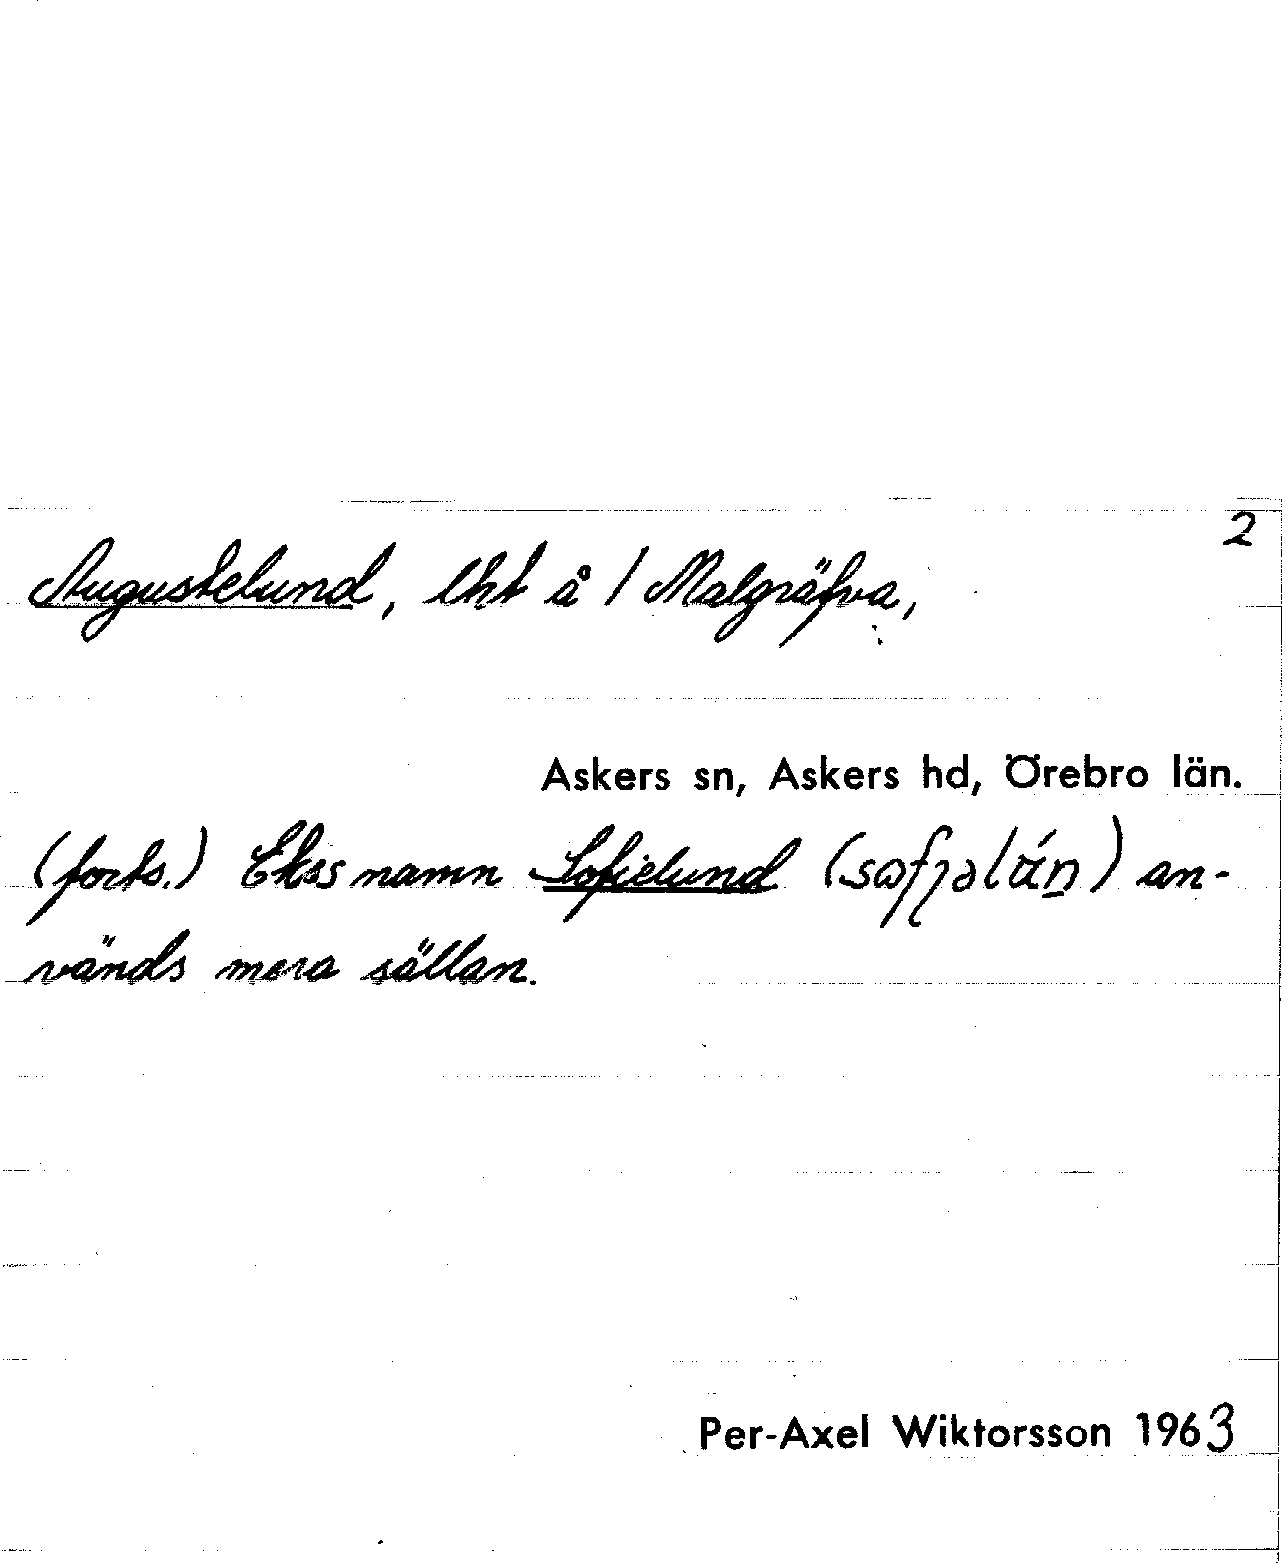 2
Augustelund, lht å 1 Malgräfva,
Askers sn, Askers hd, Örebro län.
(forts.) Ekss namn Sofielund an-
vänds mera sällan.
Per-Axel Wiktorsson 1963